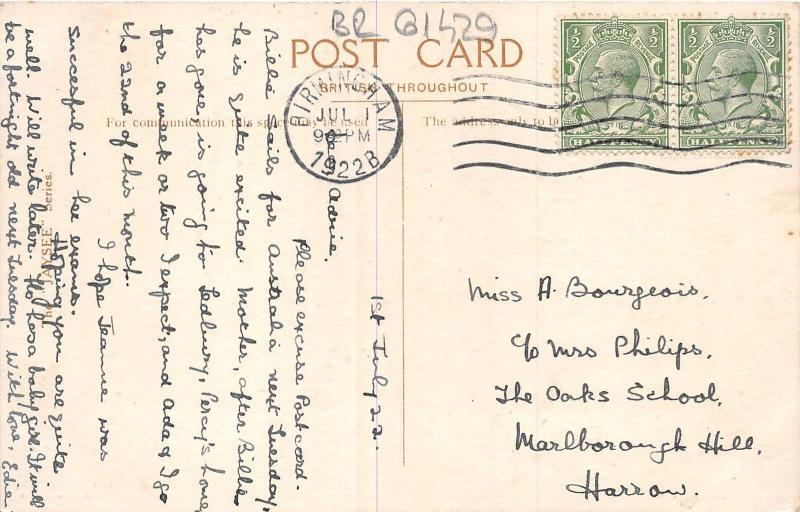 BR G1429
POST CARD
BRITISH THROUGHOUT
For communication this space may be used
The address only to be
BIRMINGHAM
JUL 1
9 PM
1922 B
½ POSTAGE REVENUE ½
HALFPENNY
½ POSTAGE REVENUE ½
HALFPENNY
"JAYSEE" Series.
1st July 22.
Adrie.
Please excuse Postcard.
Billie sails for Australia next Tuesday,
he is quite excited. Mother, after Billie
has gone, is going to Ledbury, Percy's home,
for a week or two I expect, and Ada & I go
the 22nd of this month.
I hope Jeanne was
Succesful in her exams.
Hoping you are quite
well. Will write later. Flo has a baby girl. It will
be a fortnight old next Tuesday. With love, Edie
Miss A. Bourgeois,
c/o Mrs Philips,
The Oaks School,
Marlborough Hill,
Harrow.